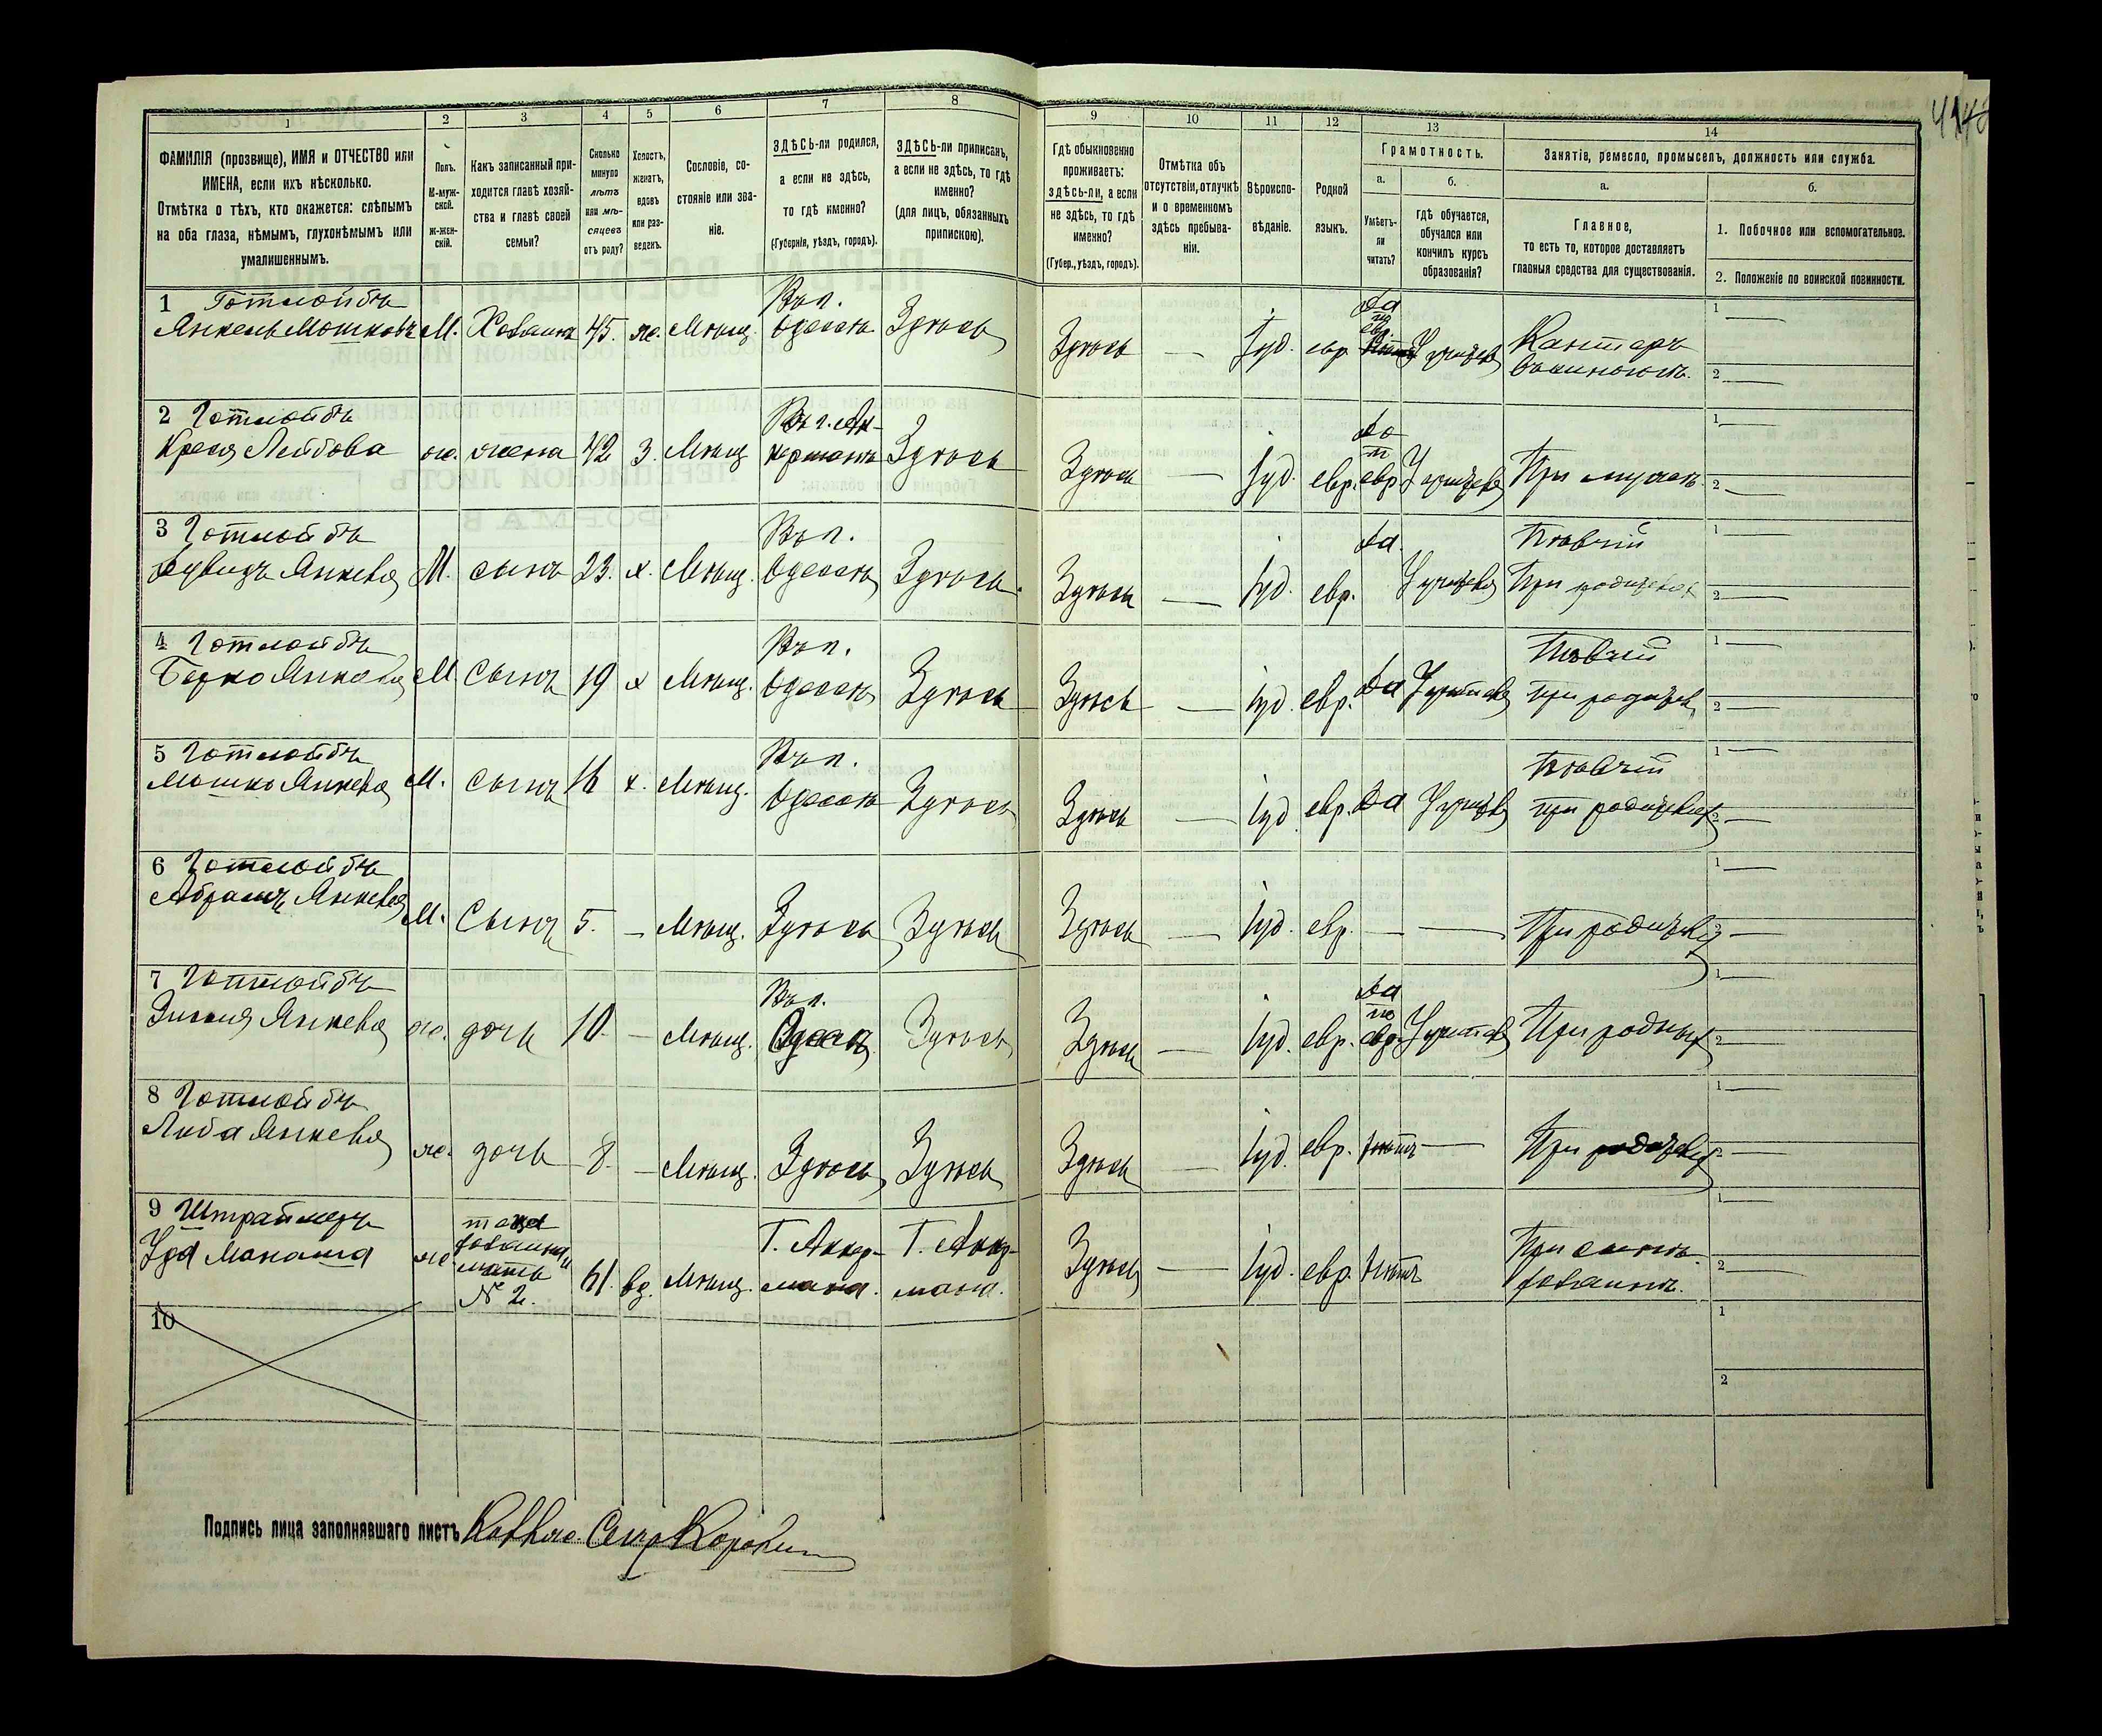 4148
1 2 3 4 5 6 7 8 9 10 11 12 13 14
ФАМИЛІЯ (прозвище), ИМЯ и ОТЧЕСТВО или
ИМЕНА, если ихъ нѣсколько.
Отмѣтка о тѣхъ, кто окажется: слѣпымъ
на оба глаза, нѣмымъ, глухонѣмымъ или
умалишеннымъ.
Полъ.
М-муж-
ской.
Ж-жен-
скій.
Какъ записанный при-
ходится главѣ хозяй-
ства и главѣ своей
семьи?
Сколько
минуло
лѣтъ
или мѣ-
сяцевъ
отъ роду?
Холостъ,
женатъ,
вдовъ
или раз-
веденъ.
Сословіе, со-
стояніе или зва-
ніе.
ЗДѢСЬ-ли родился,
а если не здѣсь,
то гдѣ именно?
(Губернія, уѣздъ, городъ).
ЗДѢСЬ-ли приписанъ,
а если не здѣсь, то гдѣ
именно?
(для лицъ, обязанныхъ
припискою).
Гдѣ обыкновенно
проживаетъ:
здѣсь-ли, а если
не здѣсь, то гдѣ
именно?
(Губер., уѣздъ, городъ).
Отмѣтка объ
отсутствіи, отлучкѣ
и о временномъ
здѣсь пребыва-
ніи.
Вѣроиспо-
вѣданіе.
Родной
языкъ.
Грамотность.
а.
Умѣетъ-
ли
читать?
б.
гдѣ обучается,
обучался или
кончилъ курсъ
образованія?
Занятіе, ремесло, промыселъ, должность или служба.
а.
Главное,
то есть то, которое доставляетъ
главныя средства для существованія.
б.
1. Побочное или вспомогательное.
2. Положеніе по воинской повинности.
1 Готлойбъ
Янкель Мошковъ М. Хозаинъ 45. ж. Мѣщ. Въ г. Одессѣ Здѣсь
Здѣсь — іуд. евр. да по евр. У учителя Канторъ
1 —
2 —
2 Готлойбъ
Креся Лейбова ж. жена 42 З. Мѣщ Въ г. Ак-
керманѣ Здѣсь
Здѣсь — іуд. евр. да по евр. У учителя При мужѣ
1 —
2 —
3 Готлойбъ
Дувидъ Янкелев М. сынъ 23. х. Мѣщ. Въ г.
Одессѣ Здѣсь.
Здѣсь — іуд. евр. да. У учителя Пѣвчій
При родителях
1 —
2 —
4 Готлойбъ
Берко Янкелев М Сынъ 19 х Мѣщ. Въ г.
Одессѣ Здѣсь
Здѣсь — іуд. евр. Да У учителя Пѣвчій
при родител
1 —
2 —
5 Готлойбъ
Мошко Янкелев М. Сынъ 16 х. Мѣщ. Въ г.
Одессѣ Здѣсь
Здѣсь — іуд евр. Да У учителя Пѣвчій
при родителях
1 —
2 —
6 Готлойбъ
Абрамъ Янкелев М. Сынъ 5. — Мѣщ. Здѣсь Здѣсь
Здѣсь — іуд. евр. — — При родителях
1 —
2 —
7 Готлойбъ
Янкелев ж. дочь 10. — Мѣщ. Въ г.
Одессѣ Здѣсь
Здѣсь — іуд. евр. да по евр. У учителя При родных
1 —
2 —
8 Готлойбъ
Янкелев ж. дочь 8. — Мѣщ. Здѣсь Здѣсь
Здѣсь — іуд. евр. нѣтъ — При родителях
1 —
2 —
9 Штраймеръ
Манаша ж. теща
хозаина и
мать
№ 2. 61. вд. Мѣщ. Г. Аккер-
мана. Г. Аккер-
мана.
Здѣсь — іуд. евр. нѣтъ При
хозаинѣ.
1 —
2 —
10
1
2
Подпись лица заполнявшаго листъ